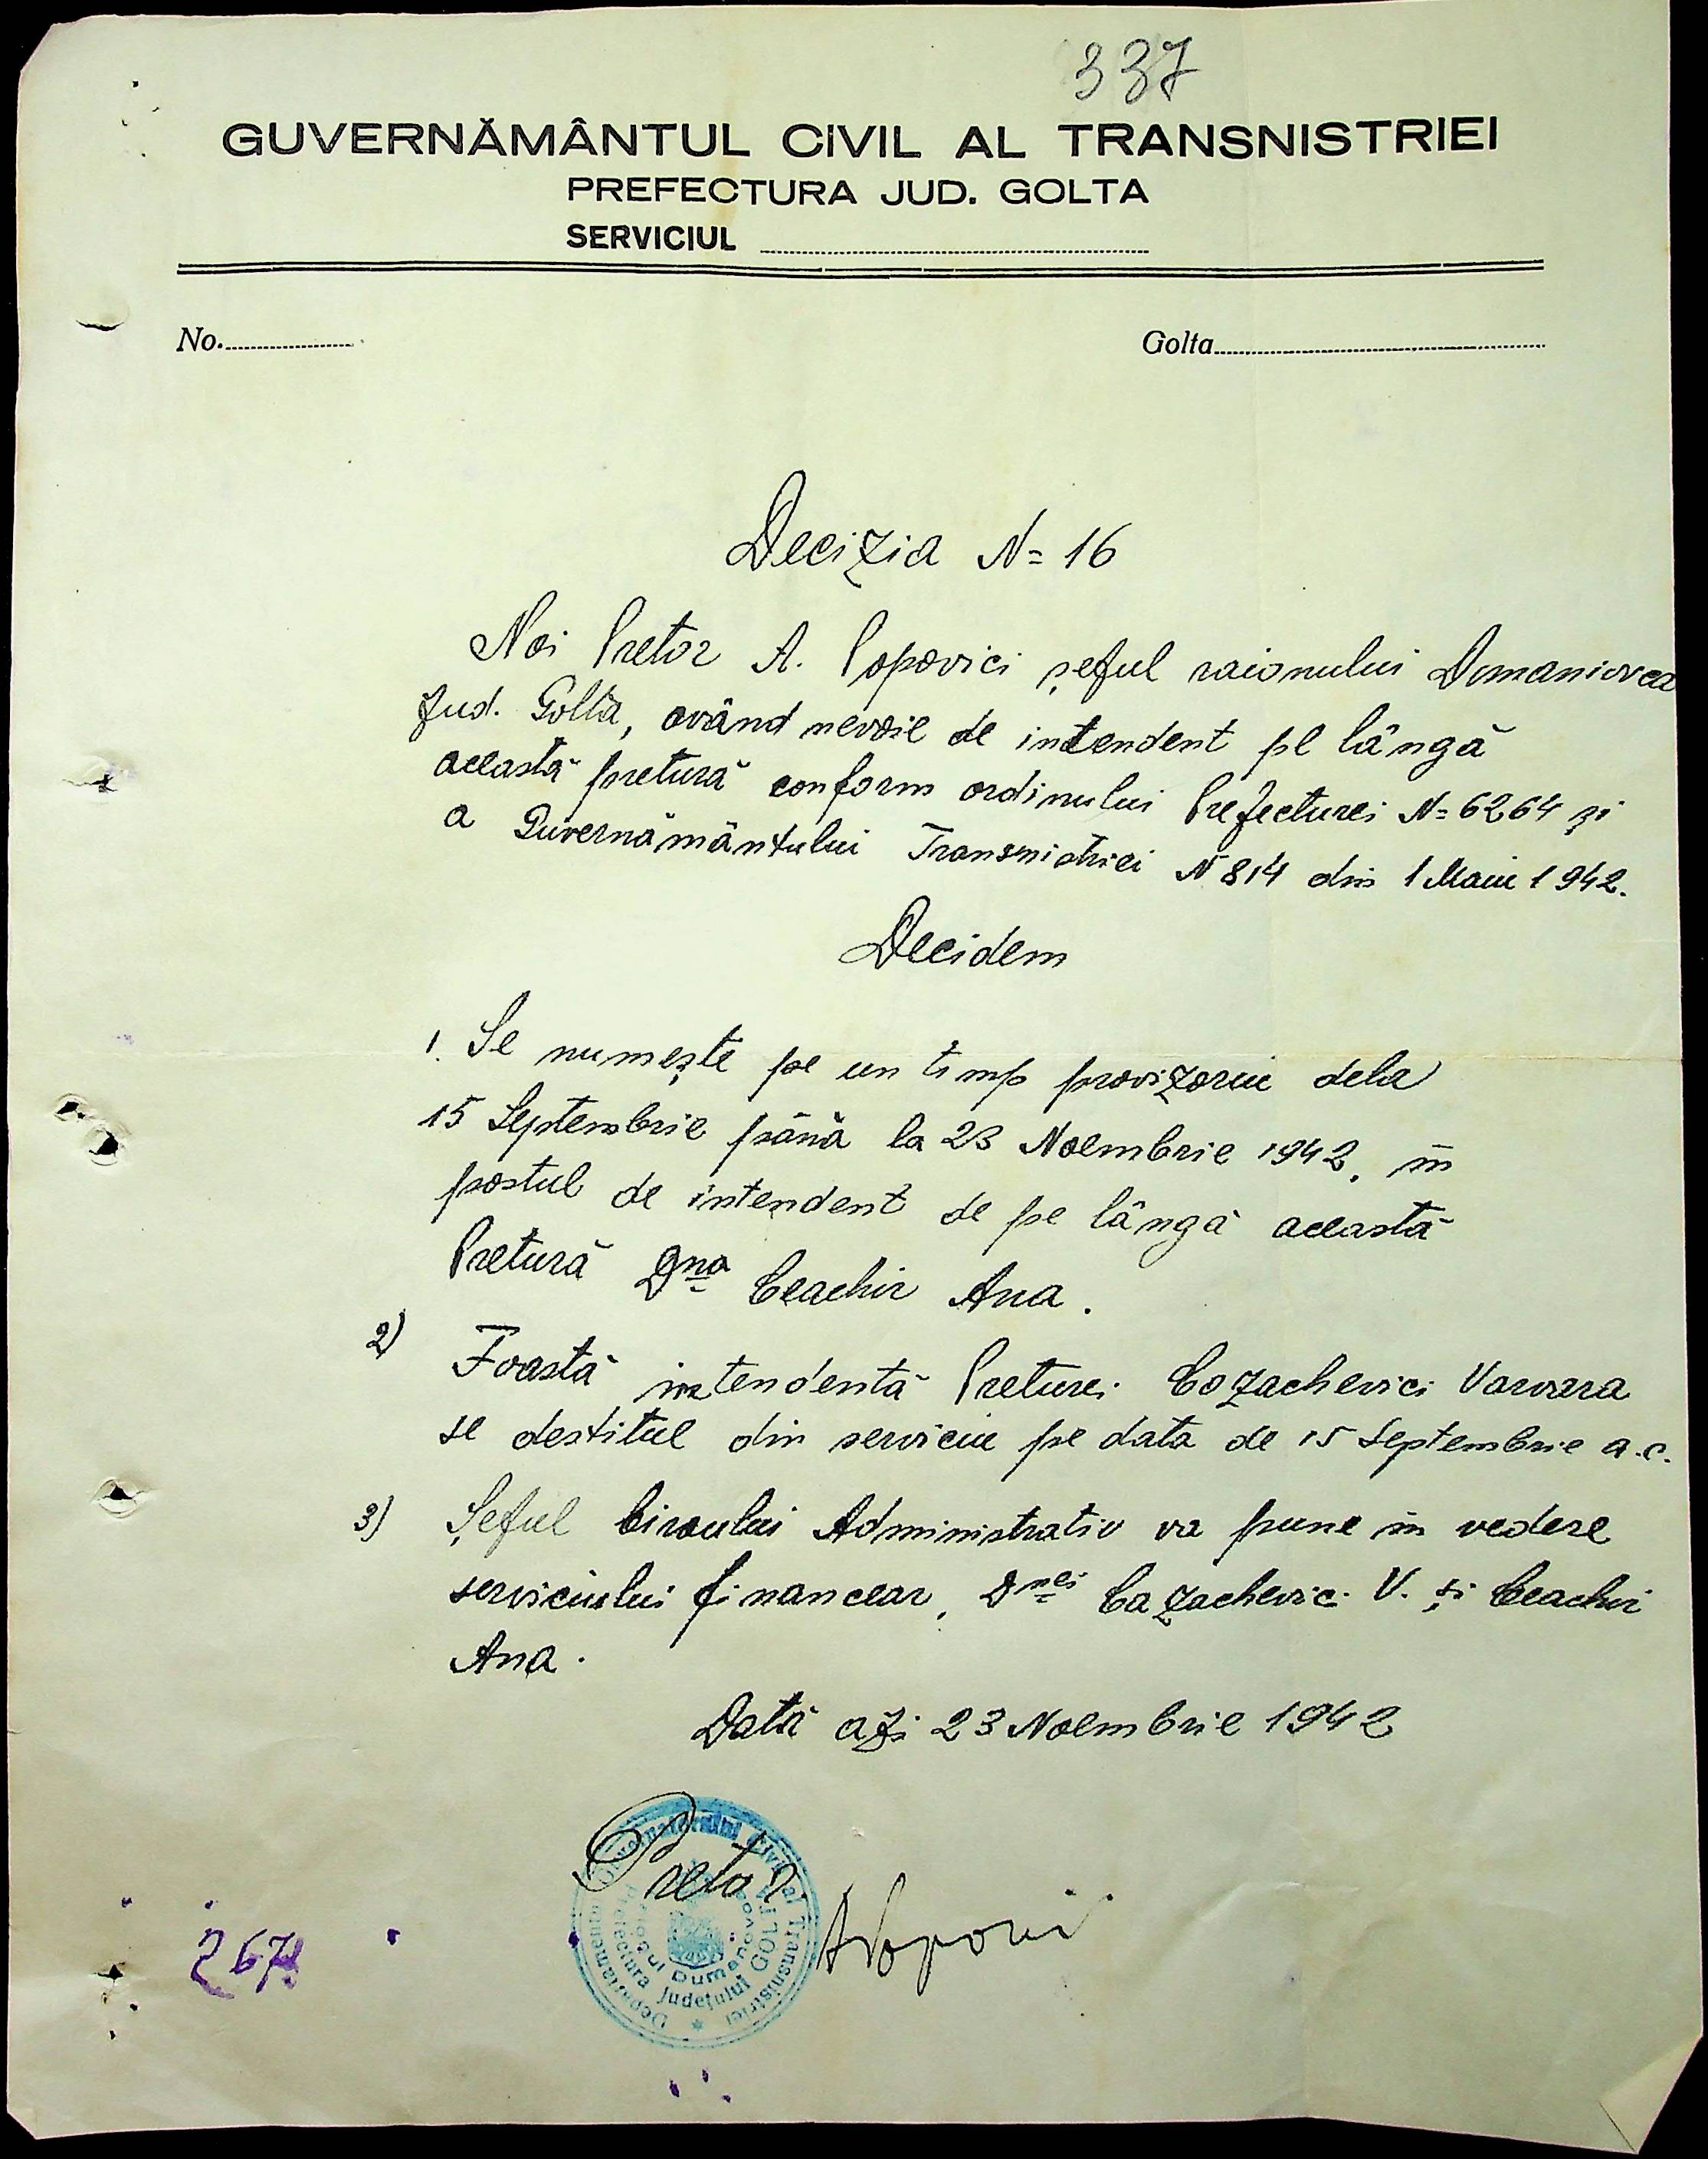 337
GUVERNĂMÂNTUL CIVIL AL TRANSNISTRIEI
PREFECTURA JUD. GOLTA
SERVICIUL
No.
Golta
Decizia N= 16
Noi Pretor A. Popovici șeful raionului Domaniovca
Jud. Golta, având nevoie de intendent pe lângă
această pretură conform ordinului Prefecturei N= 6264 și
a Guvernământului Transnistriei N 814 din 1 Maiu 1942.
Decidem
1. Se numește pe un timp provizoriu dela
15 Septembrie până la 23 Noembrie 1942, în
postul de intendent de pe lângă această
Pretură Dna Ceachir Ana.
2) Foastă intendentă Preturei Cozachevici Varvara
se destitue din serviciu pe data de 15 Septembrie a.c.
3) Șeful biroului Administrativ va pune în vedere
serviciului financear, Dnei Cazachevici V. și Ceachir
Ana.
Dată azi 23 Noembrie 1942
Pretor
APopovici
Prefectura Județului GOLTA
267